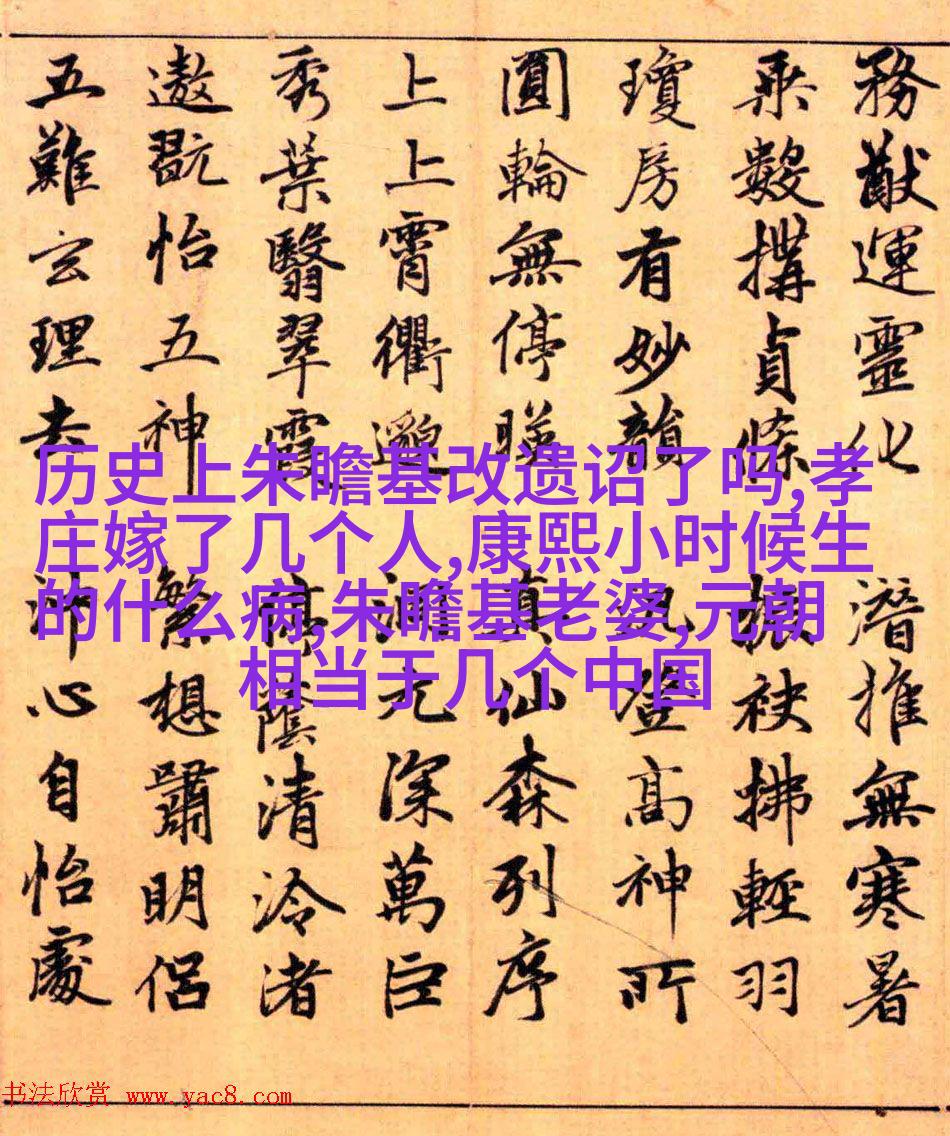 務猷運靈化潛推無寒暑
乘數構貞條振袂拂輕羽
瓊房有妙韻登高神所
圓輪無停暎真仙森列序
上上霄衢邈元深萬巨
秀葉翳翠霞停蔭清泠渚
遨翫怡五神繁想嘯明侶
五難玄理去沖心自怡處
历史上朱瞻基改遗诏了吗,孝
庄嫁了几个人,康熙小时候生
的什么病,朱瞻基老婆,元朝
相当于几个中国
书法欣赏 www.yac8.com